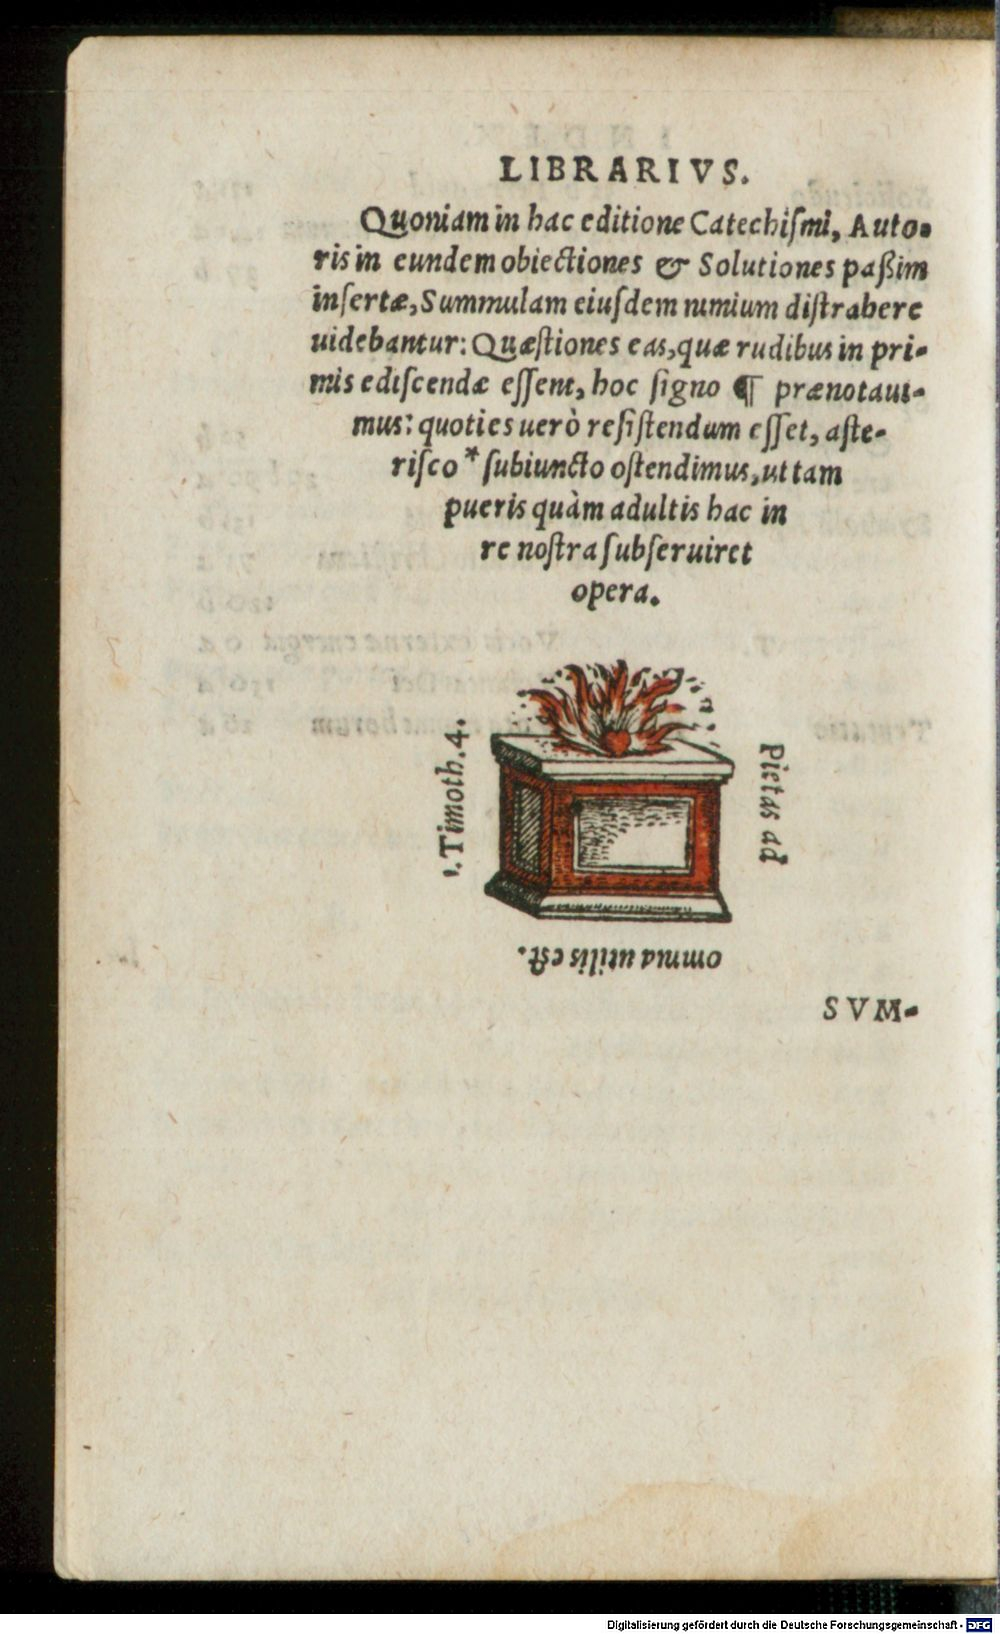 LIBRARIVS.
Quoniam in hac editione Catechiſmi, Auto-
ris in eundem obiectiones & Solutiones paßim
inſertæ, Summulam eiuſdem nimium diſtrahere
uidebantur: Quæſtiones eas, quæ rudibus in pri-
mis ediſcendæ eſſent, hoc ſigno ¶ prænotaui-
mus: quoties uerò reſiſtendum eſſet, aſte-
riſco * ſubiuncto oſtendimus, ut tam
pueris quàm adultis hac in
re noſtra ſubſeruiret
opera.
1. Timoth. 4.
Pietas ad
omnia utilis eſt.
SVM-
Digitalisierung gefördert durch die Deutsche Forschungsgemeinschaft - DFG